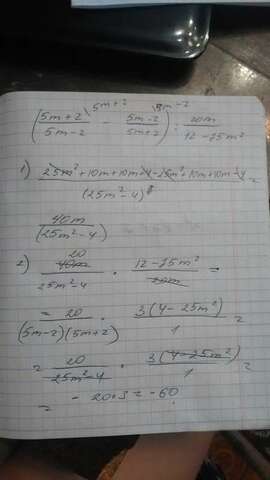 (5m+2/5m-2 \5m+2 - 5m-2/5m+2 \5m-2) : 20m/12-75m²
1) 25m²+10m+10m+4-25m²+10m+10m-4/(25m²-4) =
40m/(25m²-4)
2) 20 40m/25m²-4 · 12-75m²/20m =
= 20/(5m-2)(5m+2) · 3(4-25m²)/1 =
= 20/25m²-4 · 3(4-25m²)/1 =
= -20·3 = -60